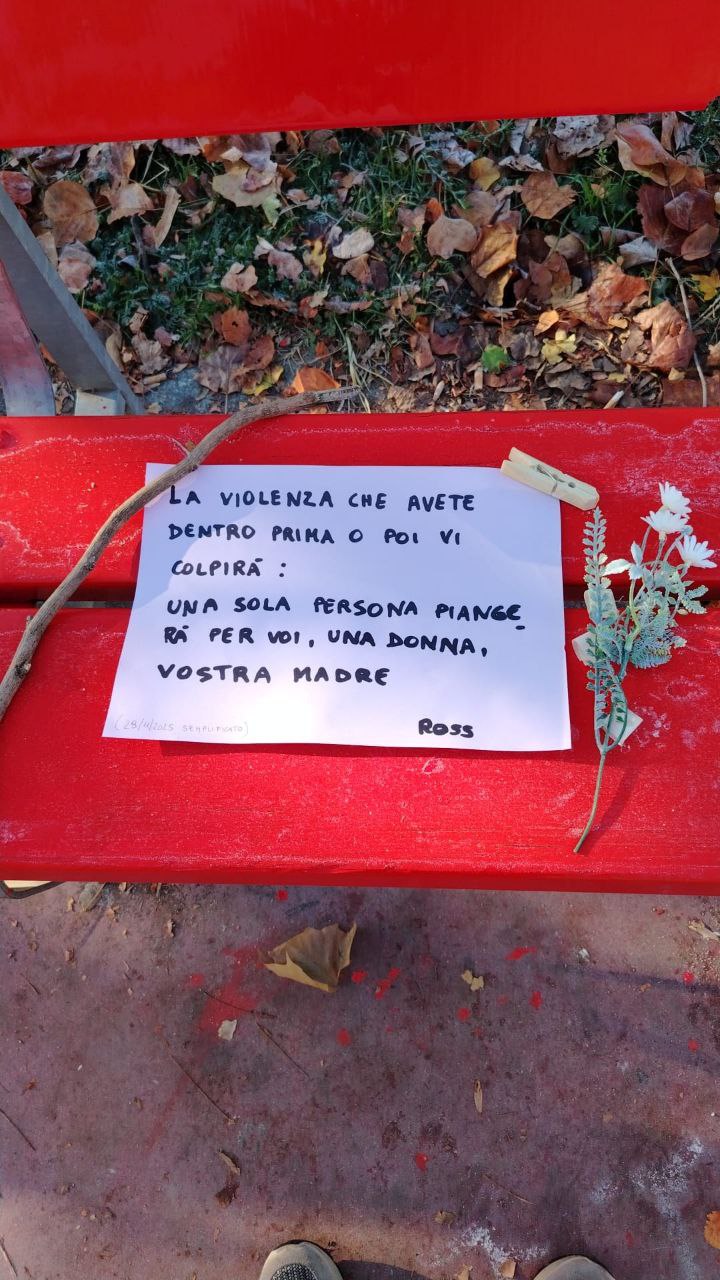 LA VIOLENZA CHE AVETE
DENTRO PRIMA O POI VI
COLPIRÀ :
UNA SOLA PERSONA PIANGE_
RÀ PER VOI, UNA DONNA,
VOSTRA MADRE
ROSS
(28/4/2025 SEMPLIFICATO)